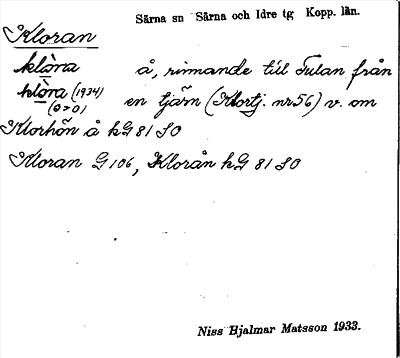 Särna sn Särna och Idre tg Kopp. län.
Kloran
klòra å, rinnande till Fulan från
klòra (1934) en tjärn (Klortj. nr 56) v. om
(o > o)
Klorhön å kG 81 SO
Kloran G 106, Klorån kG 81 SO
Niss Hjalmar Matsson 1933.